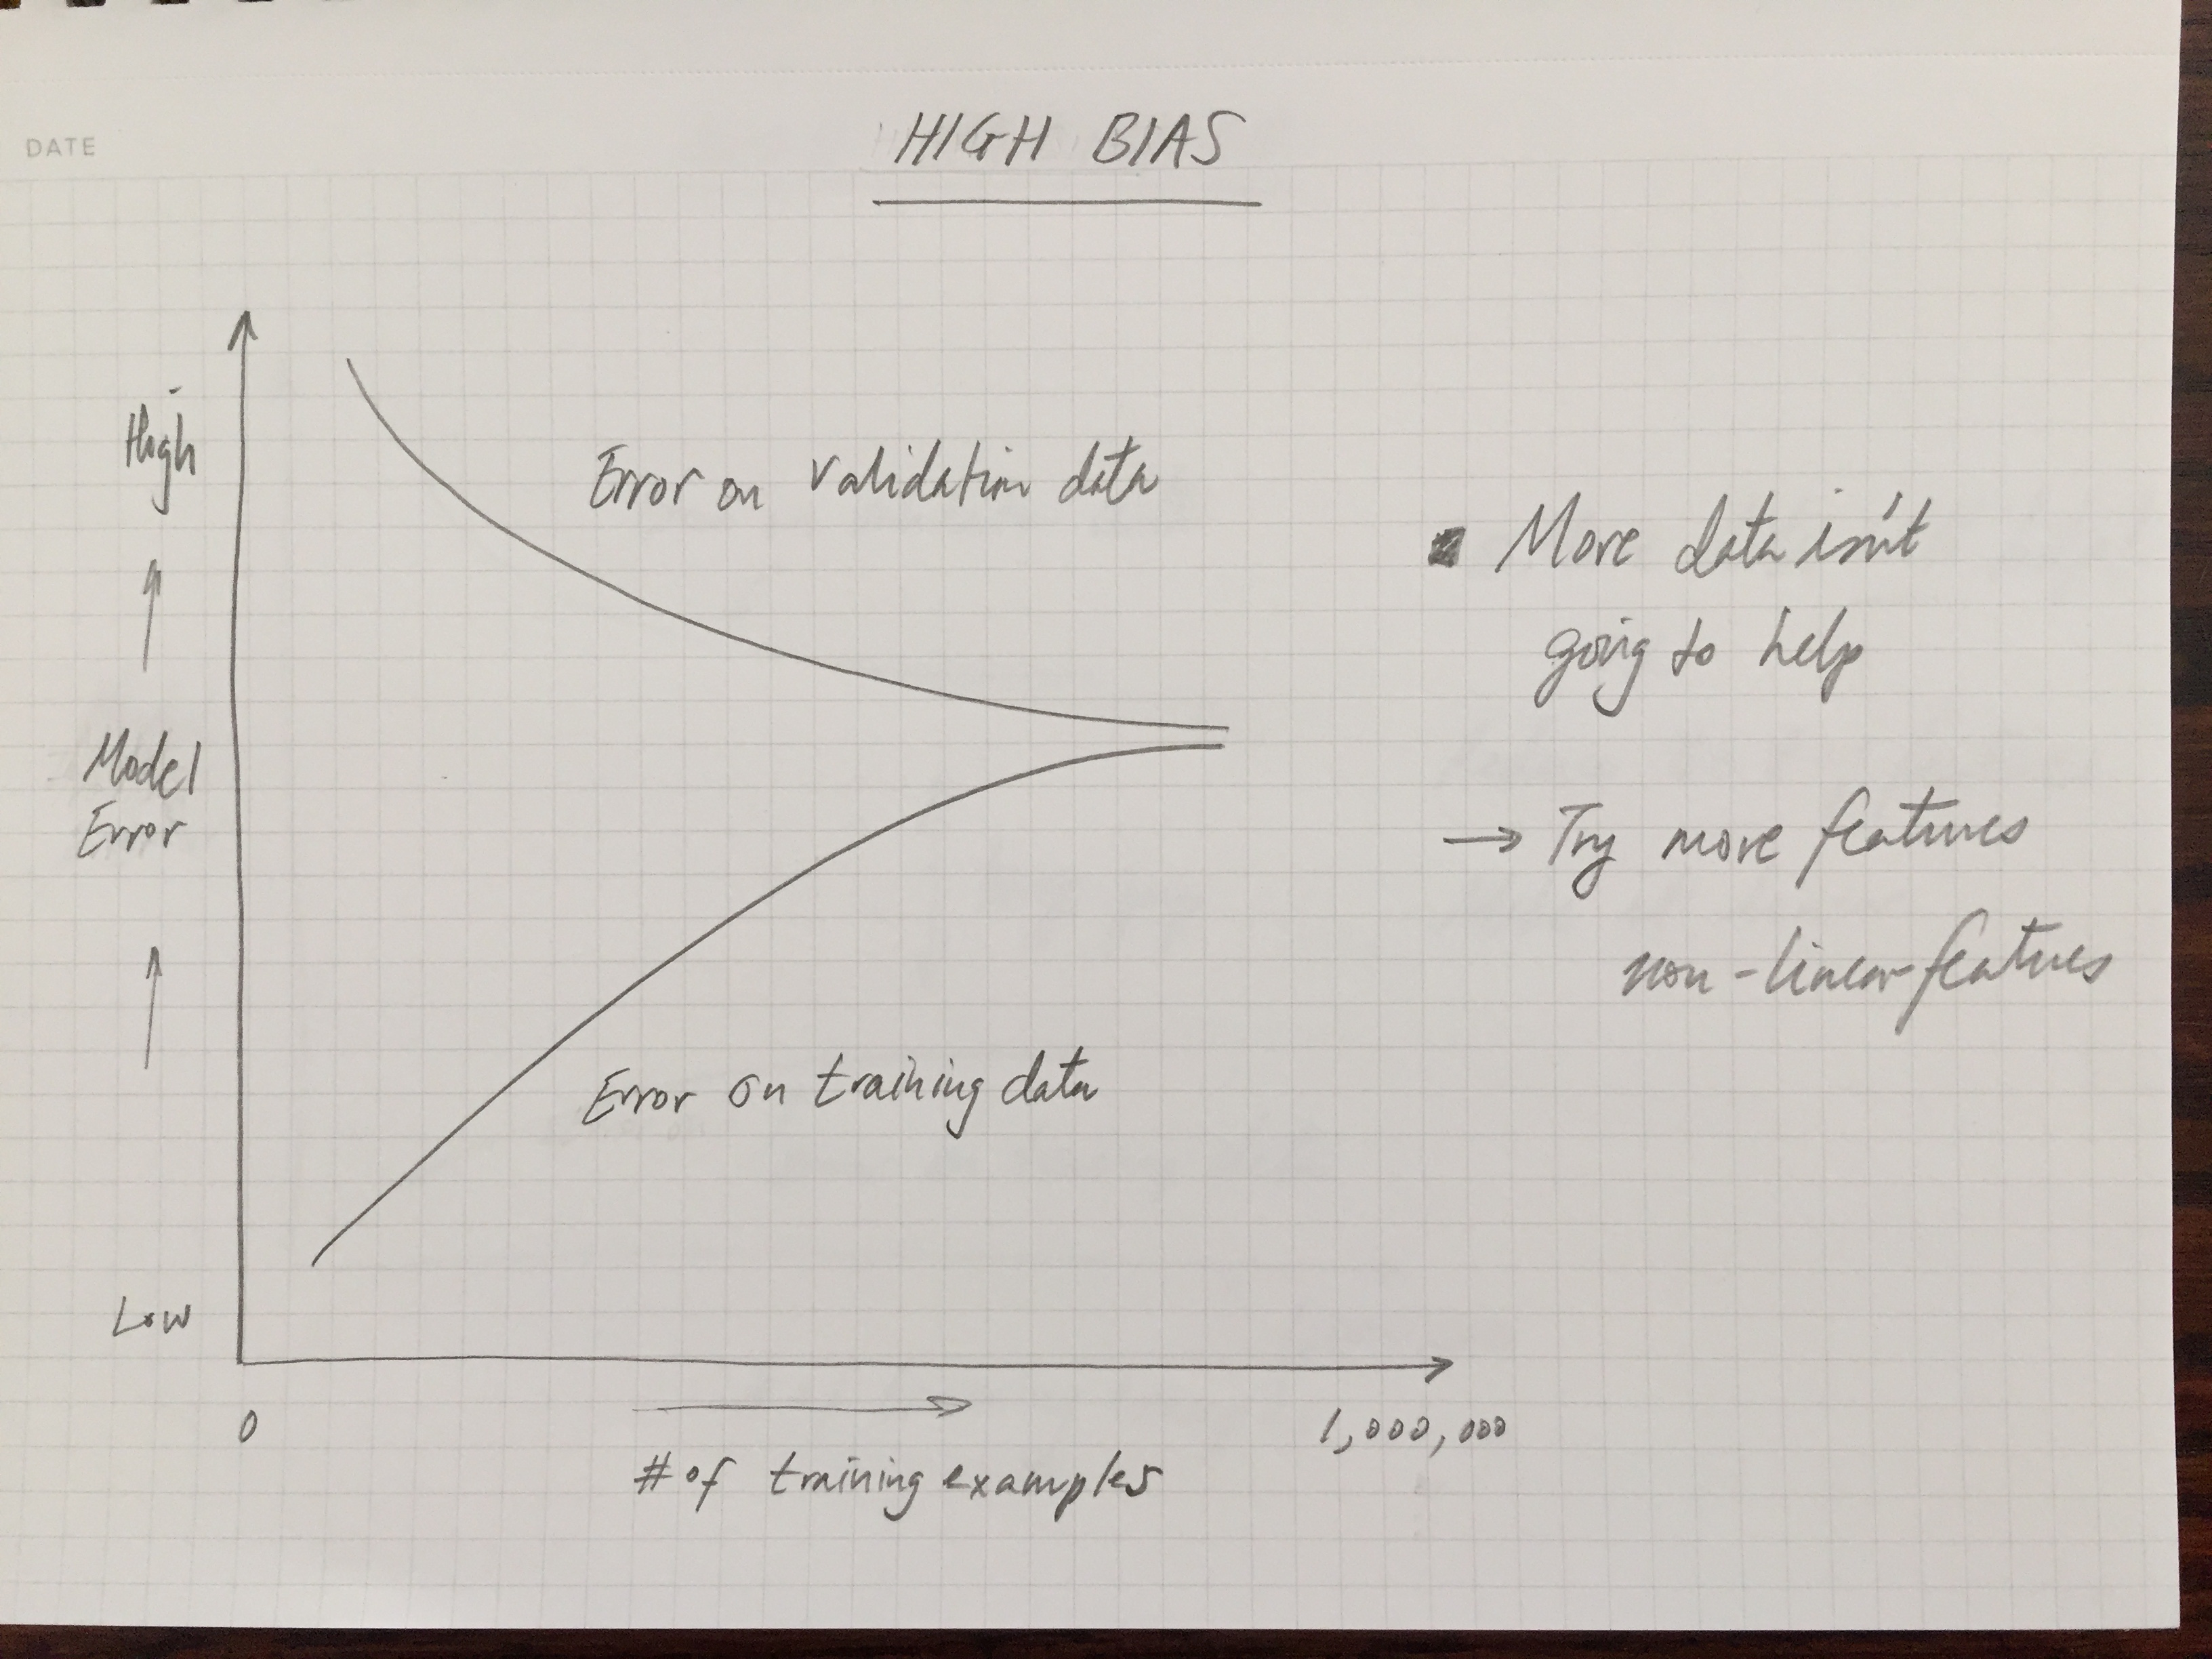 DATE
HIGH BIAS
High
Model
Error
Low
Error on validation data
Error on training data
0
# of training examples
1,000,000
More data isn't
going to help
→ Try more features
non-linear features